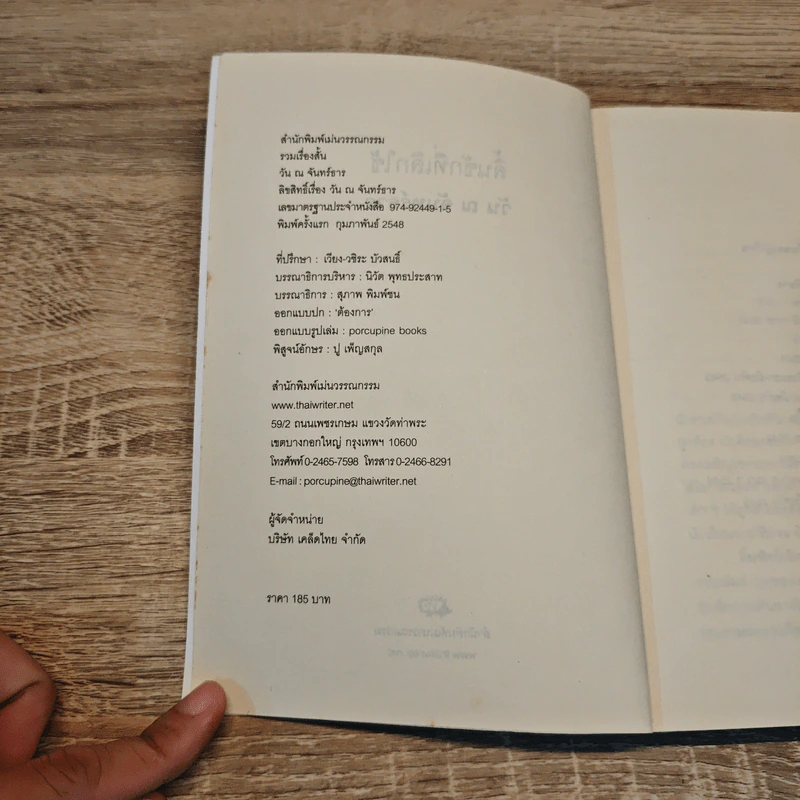 สำนักพิมพ์เม่นวรรณกรรม
รวมเรื่องสั้น
วัน ณ จันทร์ธาร
ลิขสิทธิ์เรื่อง วัน ณ จันทร์ธาร
เลขมาตรฐานประจำหนังสือ 974-92449-1-5
พิมพ์ครั้งแรก กุมภาพันธ์ 2548
ที่ปรึกษา : เวียง-วชิระ บัวสนธิ์
บรรณาธิการบริหาร : นิวัต พุทธประสาท
บรรณาธิการ : สุภาพ พิมพ์ชน
ออกแบบปก : 'ต้องการ'
ออกแบบรูปเล่ม : porcupine books
พิสูจน์อักษร : ปู เพ็ญสกุล
สำนักพิมพ์เม่นวรรณกรรม
www.thaiwriter.net
59/2 ถนนเพชรเกษม แขวงวัดท่าพระ
เขตบางกอกใหญ่ กรุงเทพฯ 10600
โทรศัพท์ 0-2465-7598 โทรสาร 0-2466-8291
E-mail : porcupine@thaiwriter.net
ผู้จัดจำหน่าย
บริษัท เคล็ดไทย จำกัด
ราคา 185 บาท